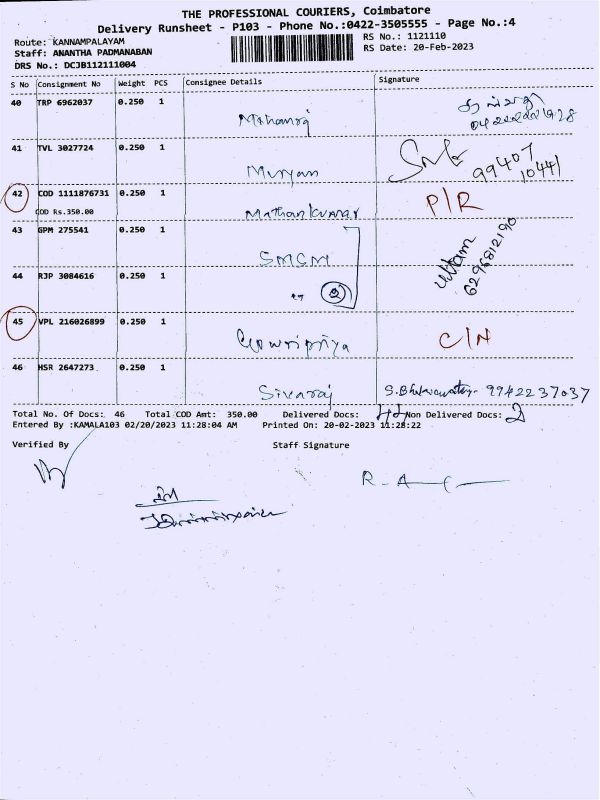 THE PROFESSIONAL COURIERS, Coimbatore
Delivery Runsheet - P103 - Phone No.:0422-3505555 - Page No.:4
Route: KANNAMPALAYAM
RS No.: 1121110
Staff: ANANTHA PADMANABAN
RS Date: 20-Feb-2023
DRS No.: DCJB112111004
S No Consignment No Weight PCS Consignee Details Signature
40 TRP 6962037 0.250 1
Mohanraj
41 TVL 3027724 0.250 1
99407
10441
42 COD 1111876731 0.250 1 P/R
COD Rs.350.00 Mathan Kumar
43 GPM 275541 0.250 1
SMCM
Uttam
6296812190
44 RJP 3084616 0.250 1
2
45 VPL 216026899 0.250 1 C/N
Gowripriya
46 HSR 2647273 0.250 1
Sivaraj 9942237037
Total No. Of Docs: 46 Total COD Amt: 350.00 Delivered Docs: 44 Non Delivered Docs: 2
Entered By :KAMALA103 02/20/2023 11:28:04 AM Printed On: 20-02-2023 11:28:22
Verified By Staff Signature